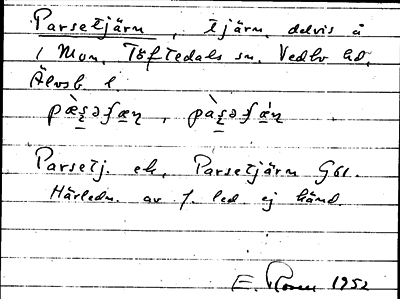 Parsetjärn, tjärn, delvis å
1 Mon, Töftedals sn. Vedbo hd,
Älvsb. l.
pæ̀s̠əʃæn̠, pàs̠əʃǽn̠
Parsetj. ek, Parsetjärn G61.
Härledn. av f. led. ej känd.
E. 1952